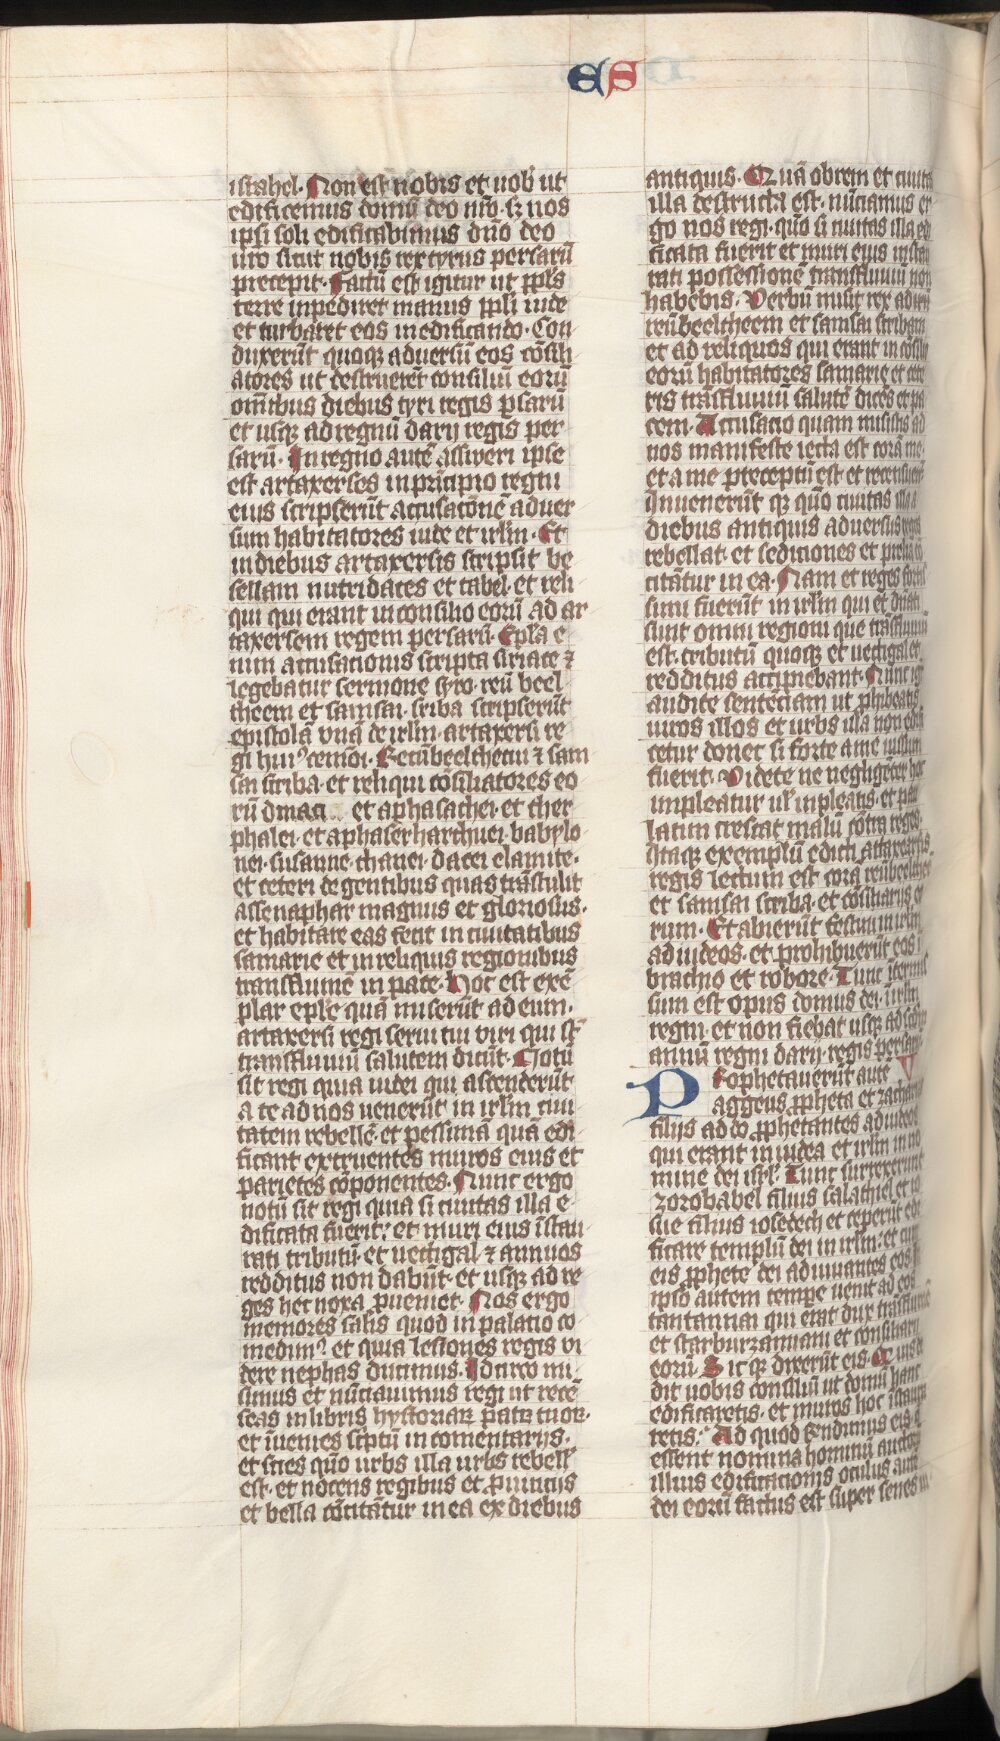 ES
israhel. Non est nobis et uob ut
edificemus domū deo nr̄o. sʒ nos
ipsi soli edificabimus dn̄o deo
nr̄o sicut nobis rex cyrus persarū
precepit. Factū est igitur ut ppl̄s
terre inpediret manus ppl̄i iude
et turbaret eos in edificando. Con
duxerūt quoqꝫ aduersū eos cōsili
atores ut destruerēt consiliū eorū
omībus diebus cyri regis ꝑsarū
et usqꝫ ad regnū darij regis per
sarū. In regno autē assueri ipse
est artaxerses in prīcipio regni
eius scripserūt accusacōnē aduer
sum habitatores iude et irl̄m. Et
in diebus artaxersis scripsit be
sellam mitridates et tabel. et reli
qui qui erant in consilio eorū ad ar
taxersem regem persarū. Epl̄a e
nim accusacionis scripta siriace ⁊
legebatur sermone syro. reū beel
theem et samsai. scriba scripserūt
epistolā vnā de irl̄m. artaxersi re
gi huiꝰcemōi. Reūbeeltheem ⁊ sam
sai scriba. et reliqui cōsiliatores eo
rū dinaei et aphasachei. et ther
phalei. et aphaserharthuei. babylo
nei. susanne. thauei. dacei elamite.
et ceteri de gentibus quas trāstulit
assenaphar magnus et gloriosus.
et habitare eas fecit in ciuitatibus
samarie et in reliquis regionibus
transflumē in pace. Hoc est exē
plar epl̄e quā miserūt ad eum.
artaxersi regi serui tui uiri qui st̄
transfluuiū salutem dicūt. Notū
sit regi quia iudei qui ascenderūt
a te ad nos uenerūt in irl̄m ciui
tatem rebellē. et pessimā quā edi
ficant extruentes muros eius et
parietes cōponentes. Nunc ergo
notū sit regi quia si ciuitas illa e
dificata fuerit. et muri eius īstau
rati tributū. et uectigal ⁊ annuos
redditus non dabūt. et usqꝫ ad re
ges hec noxa ꝓueniet. Nos ergo
memores salis quod in palacio co
medimꝰ. et quia lesiones regis vi
dere nephas ducimus. Idcirco mi
simus et nūciauimus regi ut recē
seas in libris hystoriaꝝ patꝝ tuoꝝ.
et īuenies scptū in comentarijs.
et scies quō urbs illa urbs rebell̄
est. et nocens regibus et ꝓuincijs
et bella cōcitātur in ea ex diebus
antiquis. Quā obrem et ciuitas
illa destructa est. nūciamus er
go nos regi. quō si ciuitas illa edi
ficata fuerit et muri eius instau
rati possessionē transfluuiū non
habebis. Verbū misit rex ad
reūbeeltheem et samsai scribam
et ad reliquos qui erant in cōsilio
eorū habitatores samarie et cete
ris trāsfluuiū salutē dicēs et pa
cem. Accusacio quam misistis ad
nos manifeste lecta est corā me.
et a me preceptū est et recensuerūt
Inuenerūt qꝫ quō ciuitas illa a
diebus antiquis aduersus reges
rebellat. et sediciones et prelia cō
citātur in ea. Nam et reges fortis
simi fuerūt in irl̄m qui et dn̄ati
sunt omni regioni que trāsfluuiū
est. tributū quoqꝫ et uectigal et
redditus accipiebant. Nunc igr̄
audite sentēciam ut ꝓhibeatis
uiros illos et urbs illa non edifi
cetur donec si forte a me iussum
fuerit. Videte ne negligēter hoc
impleatur ul̄ inpleatis. et pau
latim crescat malū cōtra reges.
Itaqꝫ exemplū edicti artaxersis
regis lectum est corā reūbeeltheē
et samsai scriba. et cōsiliarijs eo
rum. Et abierūt festini in irl̄m
ad iudeos. et prohibuerūt eos ī
brachio et robore. Tunc ītermis
sum est opus domus dei. ī irl̄m
regni. et non fiebat usqꝫ ad scd̄m
annū regni darij. regis persarū.
Prophetauerūt autē V
aggeus ꝓpheta et zacharias
filius addo ꝓphetantes ad iudeos
qui erant in iudea et irl̄m in no
mine dei isrl̄. Tunc surrexerunt
zorobabel filius salathiel et io
sue filius iosedech et ceperūt edi
ficare templū dei in irl̄m. et cum
eis ꝓphete dei adiuuantes eos. I
ipso autem tempe uenit ad eos
tantannai qui erat dux trāsflumē
et starburzannai et consiliarij
eorū. Sicqꝫ dixerūt eis. Quis de
dit uobis consiliū ut domū hanc
edificaretis. et muros hoc īstaura
retis. Ad quod rn̄dimus eis. q̄
essent nomina hominū auctorū
illius edificacionis oculus autē
dei eorū factus est super senes iu